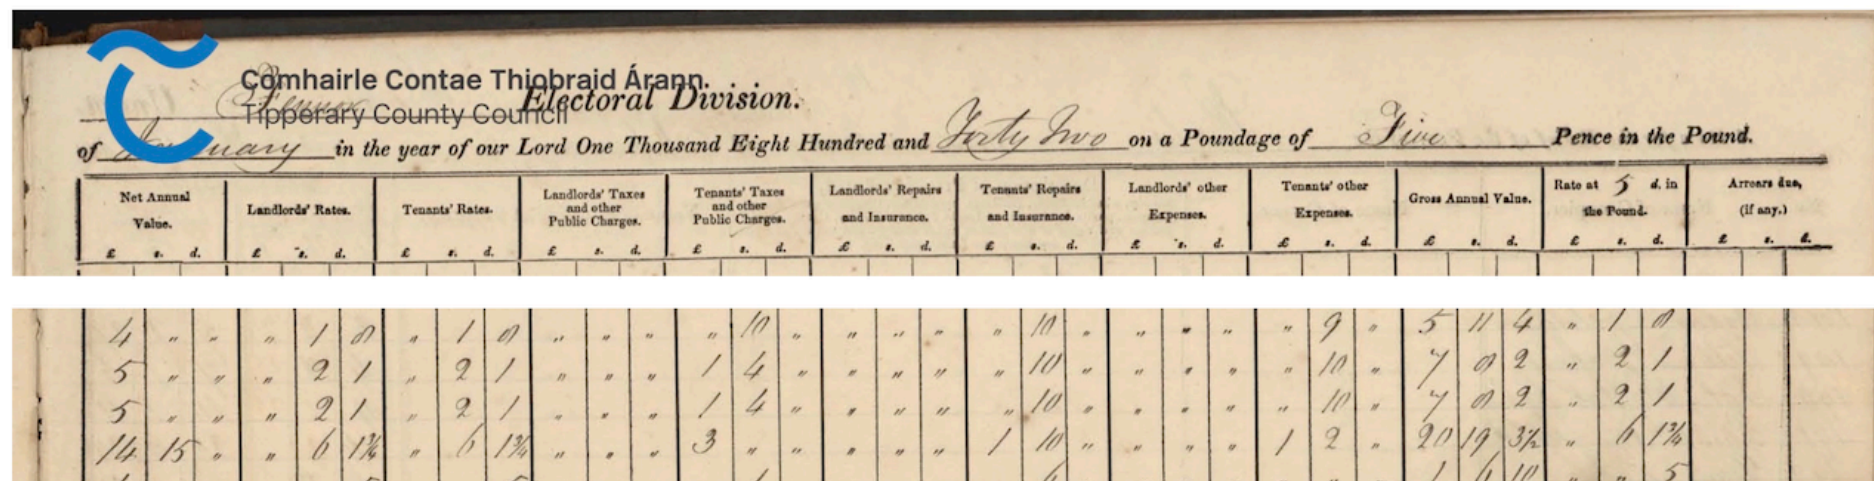 Comhairle Contae Thiobraid Árann.
Tipperary County Council
Fennor Electoral Division.
of January in the year of our Lord One Thousand Eight Hundred and Forty Two on a Poundage of Five Pence in the Pound.
Net Annual Value. Landlords' Rates. Tenants' Rates. Landlords' Taxes and other Public Charges. Tenants' Taxes and other Public Charges. Landlords' Repairs and Insurance. Tenants' Repairs and Insurance. Landlords' other Expenses. Tenants' other Expenses. Gross Annual Value. Rate at 5 d. in the Pound. Arrears due, (if any.)
£ s. d. £ s. d. £ s. d. £ s. d. £ s. d. £ s. d. £ s. d. £ s. d. £ s. d. £ s. d. £ s. d. £ s. d.
4 " " " 1 8 " 1 8 " " " " 10 " " " " " 10 " " " " " 9 " 5 11 4 " 1 8
5 " " " 2 1 " 2 1 " " " 1 4 " " " " " 10 " " " " " 10 " 7 8 2 " 2 1
5 " " " 2 1 " 2 1 " " " 1 4 " " " " " 10 " " " " " 10 " 7 8 2 " 2 1
14 15 " " 6 1¾ " 6 1¾ " " " 3 " " " " " 1 10 " " " " 1 2 " 20 19 3½ " 6 1¾